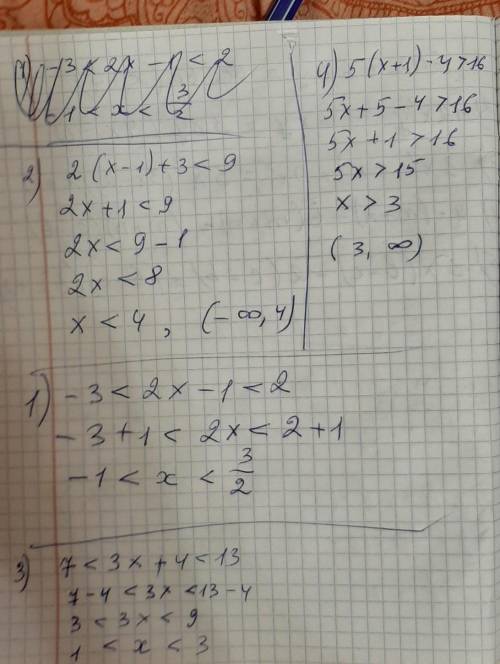 1) -3 < 2x - 1 < 2
-1 < x < 3/2
2) 2(x-1)+3 < 9
2x+1 < 9
2x < 9-1
2x < 8
x < 4 , (-∞, 4)
4) 5(x+1)-4 > 16
5x+5-4 > 16
5x+1 > 16
5x > 15
x > 3
(3, ∞)
1) -3 < 2x-1 < 2
-3+1 < 2x < 2+1
-1 < x < 3/2
3) 7 < 3x+4 < 13
7-4 < 3x < 13-4
3 < 3x < 9
1 < x < 3